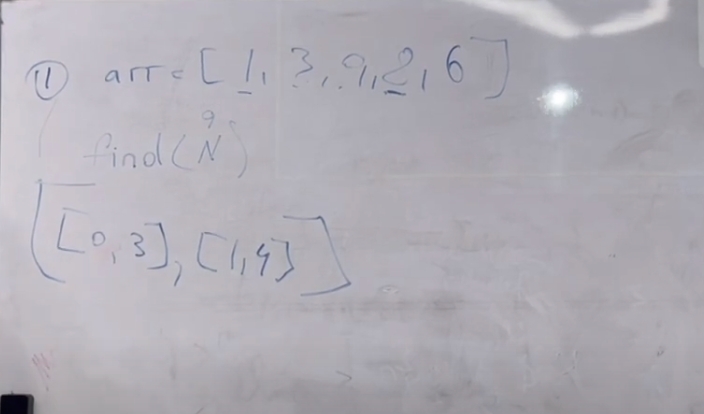 11 arr = [ 1, 3, 9, 2, 6 ]
9
find(N)
[[0,3], [1,4]]